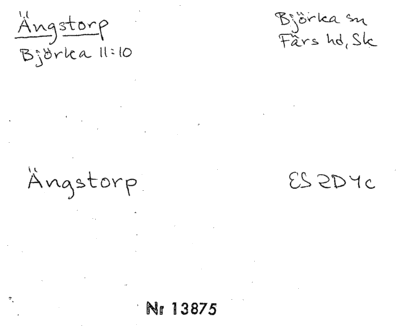 Ängstorp
Björka 11:10
Björka sn
Färs hd, Sk
Ängstorp
ES 2D4c
Nr 13875